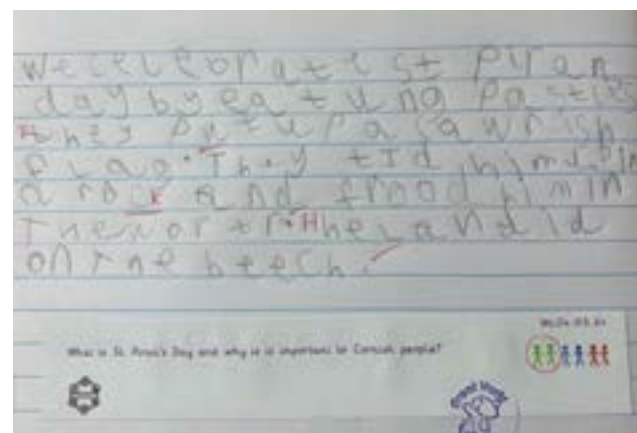 we celebrate st piran
day by eatung pasties
they put up a cawrnish
flag. They tid him up in
a rock and frood him in
the worter. He landid
on the beech.
What is St. Piran's Day and why is it important to Cornish people?